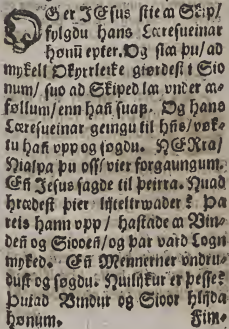 OG er JEsus stie a Skip/
fylgdu hans Læresueinar
honum epter. Og sia þu/ ad
mykell Okyrrleike giørdest i Sio
num/ suo ad Skiped la vnder a=
føllum/enn hañ suaf. Og hans
Læresueinar geingu til hñs/vøk=
tu hañ vpp og søgdu. HERra/
Hialpa þu oss/vier forgaungum.
Eñ Jesus sagde til þeirra. Huad
hrædest þier lijteltrwader? Þa
reis hann vpp / hastade a Vin=
deñ og Siooeñ/og þar vard Logn
myked. Eñ Mennerner vndru=
dust og søgdu. Huilijkur er þesse?
Þuiad Vindur og Sioor hlijda
honum. Fim=